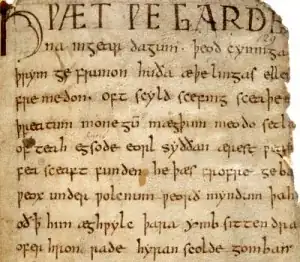 HǷÆT ǷE GARDE
na ingear dagum. þeod cyninga
þrym ge frunon huða æþelingas elle
fremedon. oft scyld scefing sceaþe
þreatum monegū mægþum meodo setl
of teah egsode eorl syððan ærest ƿear
fea sceaft funden he þæs frofre geba
ƿeox under ƿolcnum ƿeorð myndum þah
oð ꝥ him æghƿylc þara ymb sittendra
ofer hron rade hyran scolde gomban